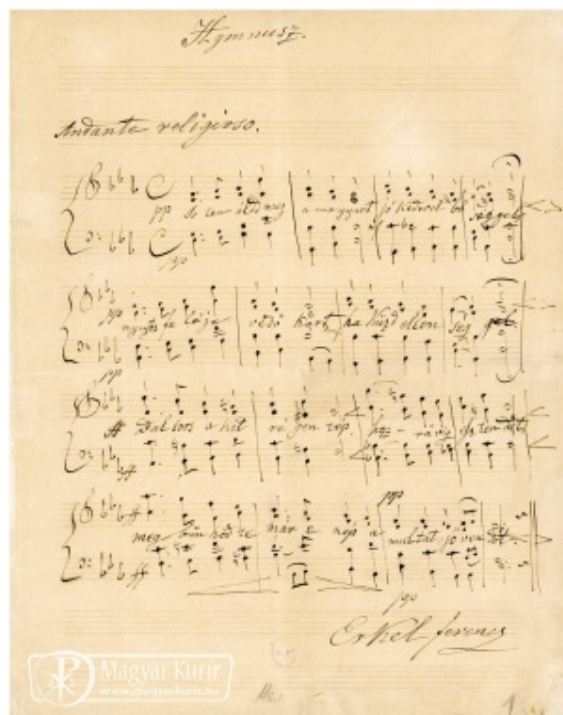 Hymnusz.
Andante religioso.
pp Is ten áldd meg a magyart jó kedvvel bő séggel
pp
pp nyújts fe léje védő kart ha küzd ellen
pp
ff Bal sors a kit ré gen tép
ff
ff meg bűn hőd te már e nép a multat jöven dőt
pp
ff
pp
Erkel ferencz
Magyar Kurír
www.magyarkurir.hu
1